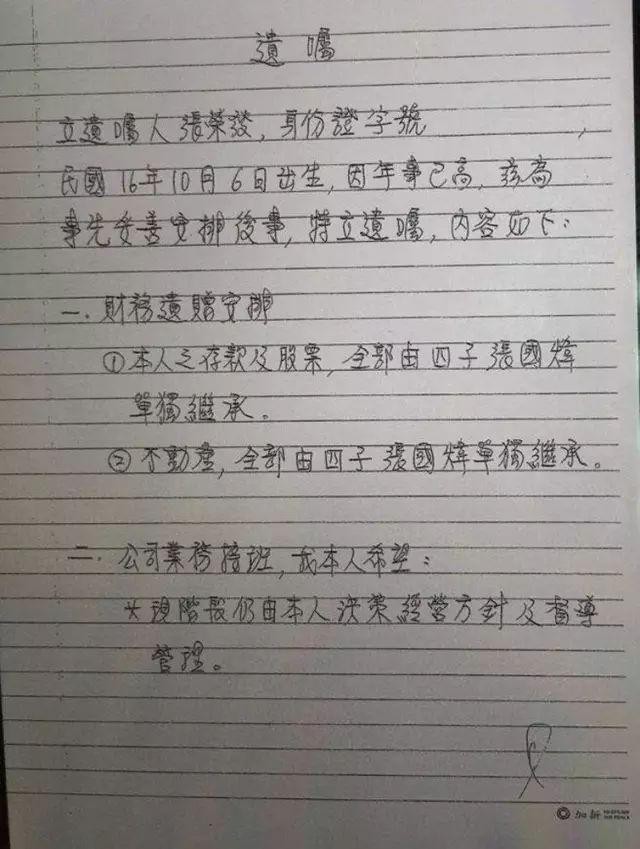 遺囑
立遺囑人張榮發,身份證字號 ,
民國16年10月6日出生,因年事已高,茲為
事先妥善安排後事,特立遺囑,內容如下:
一.財務遺贈安排
①本人之存款及股票,全部由四子張國煒
單獨繼承。
②不動產,全部由四子張國煒單獨繼承。
二.公司業務接班,我本人希望:
*現階段仍由本人決策經營方針及督導
管理。
加新